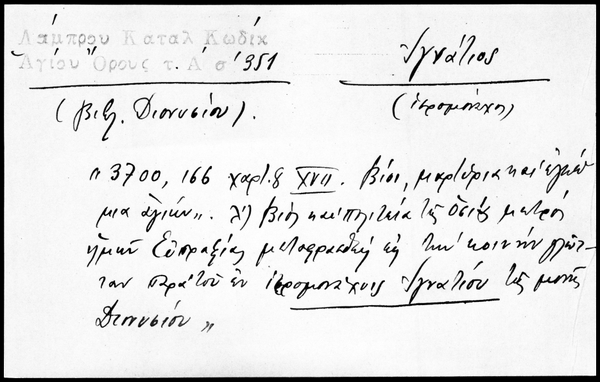 Λάμπρου Καταλ Κώδικ
Ἁγίου Ὄρους τ. Α σ 351
Ἰγνάτιος
(βιβλ. Διονυσίου).
(ἱερομόναχος)
"3700, 166 χαρτ. 8 XVII. Βίοι, μαρτύρια καὶ ἐγκώ
μια ἁγίων". λ') Βίος καὶ πολιτεία τῆς ὁσίας μητρός
ἡμῶν Εὐπραξίας μεταφρασθεὶς εἰς τὴν κοινὴν γλῶτ-
ταν παρὰ τοῦ ἐν ἱερομονάχοις Ἰγνατίου τῆς μονῆς
Διονυσίου"